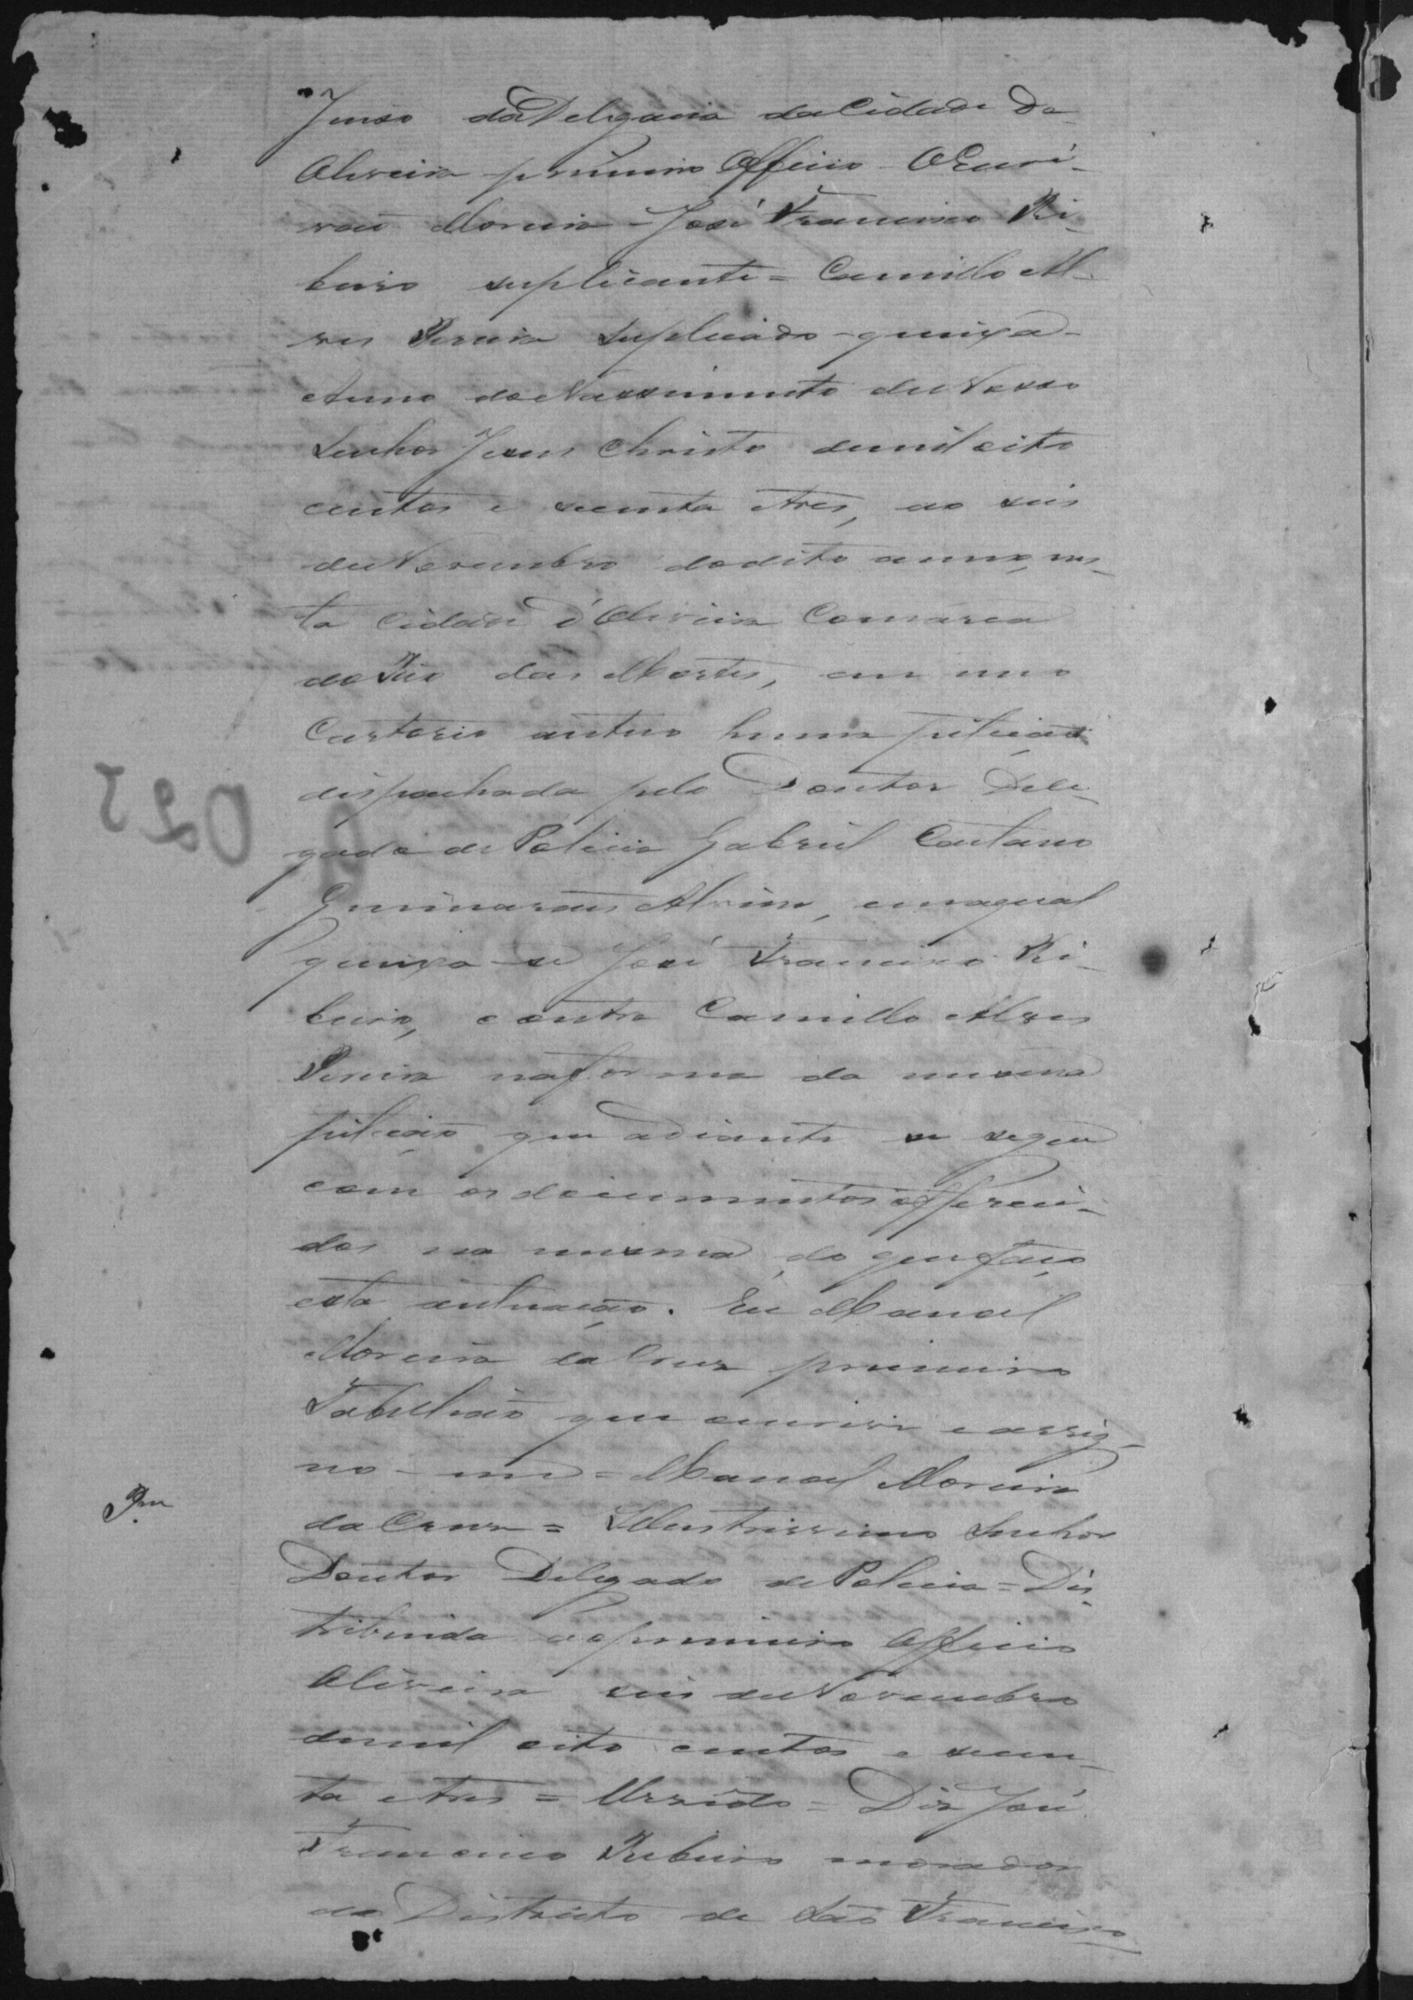 Juiso da Delegacia da Cidade de
Oliveira primeiro Officio OEscri-
vaõ Moreira - José Francisco Ri-
beiro suplicante = Camillo Al-
ves Pereira Suplicado - queixa -
Anno do Nassimento de Nosso
Senhor Jesus Christo demil oito
centos e secenta etres, ao seis
de Novembro dodito anno, nes-
ta Cidade d'Oliveira Comarca
do Rio das Mortes, em meo
Cartorio autuo huma petiçaõ
dispachada pelo Doutor Dele-
gado de Policia Gabriel Caetano
Guimaraes Alvim, emaqual
queixa-se José Francisco Ri-
beiro, contra Camillo Alves
Pereira naforma da mesma
petiçaõ que adiante se segue
com os documentos offereci-
dos na mesma, do que faço
esta autuaçaõ. Eu Manoel
Moreira da Cruz primeiro
Tabelliaõ que escrevi e assig-
no - me = Manoel Moreira
da Cruz = Illustrissimo Senhor
Pm
Doutor Delegado de Policia = Dis-
tribuida aoprimeiro Officio
Oliveira seis de Novembro
demil oito centos e secen-
ta etres = = Diz José
Francisco Ribeiro morador
do Districto de Saõ Francisco
025